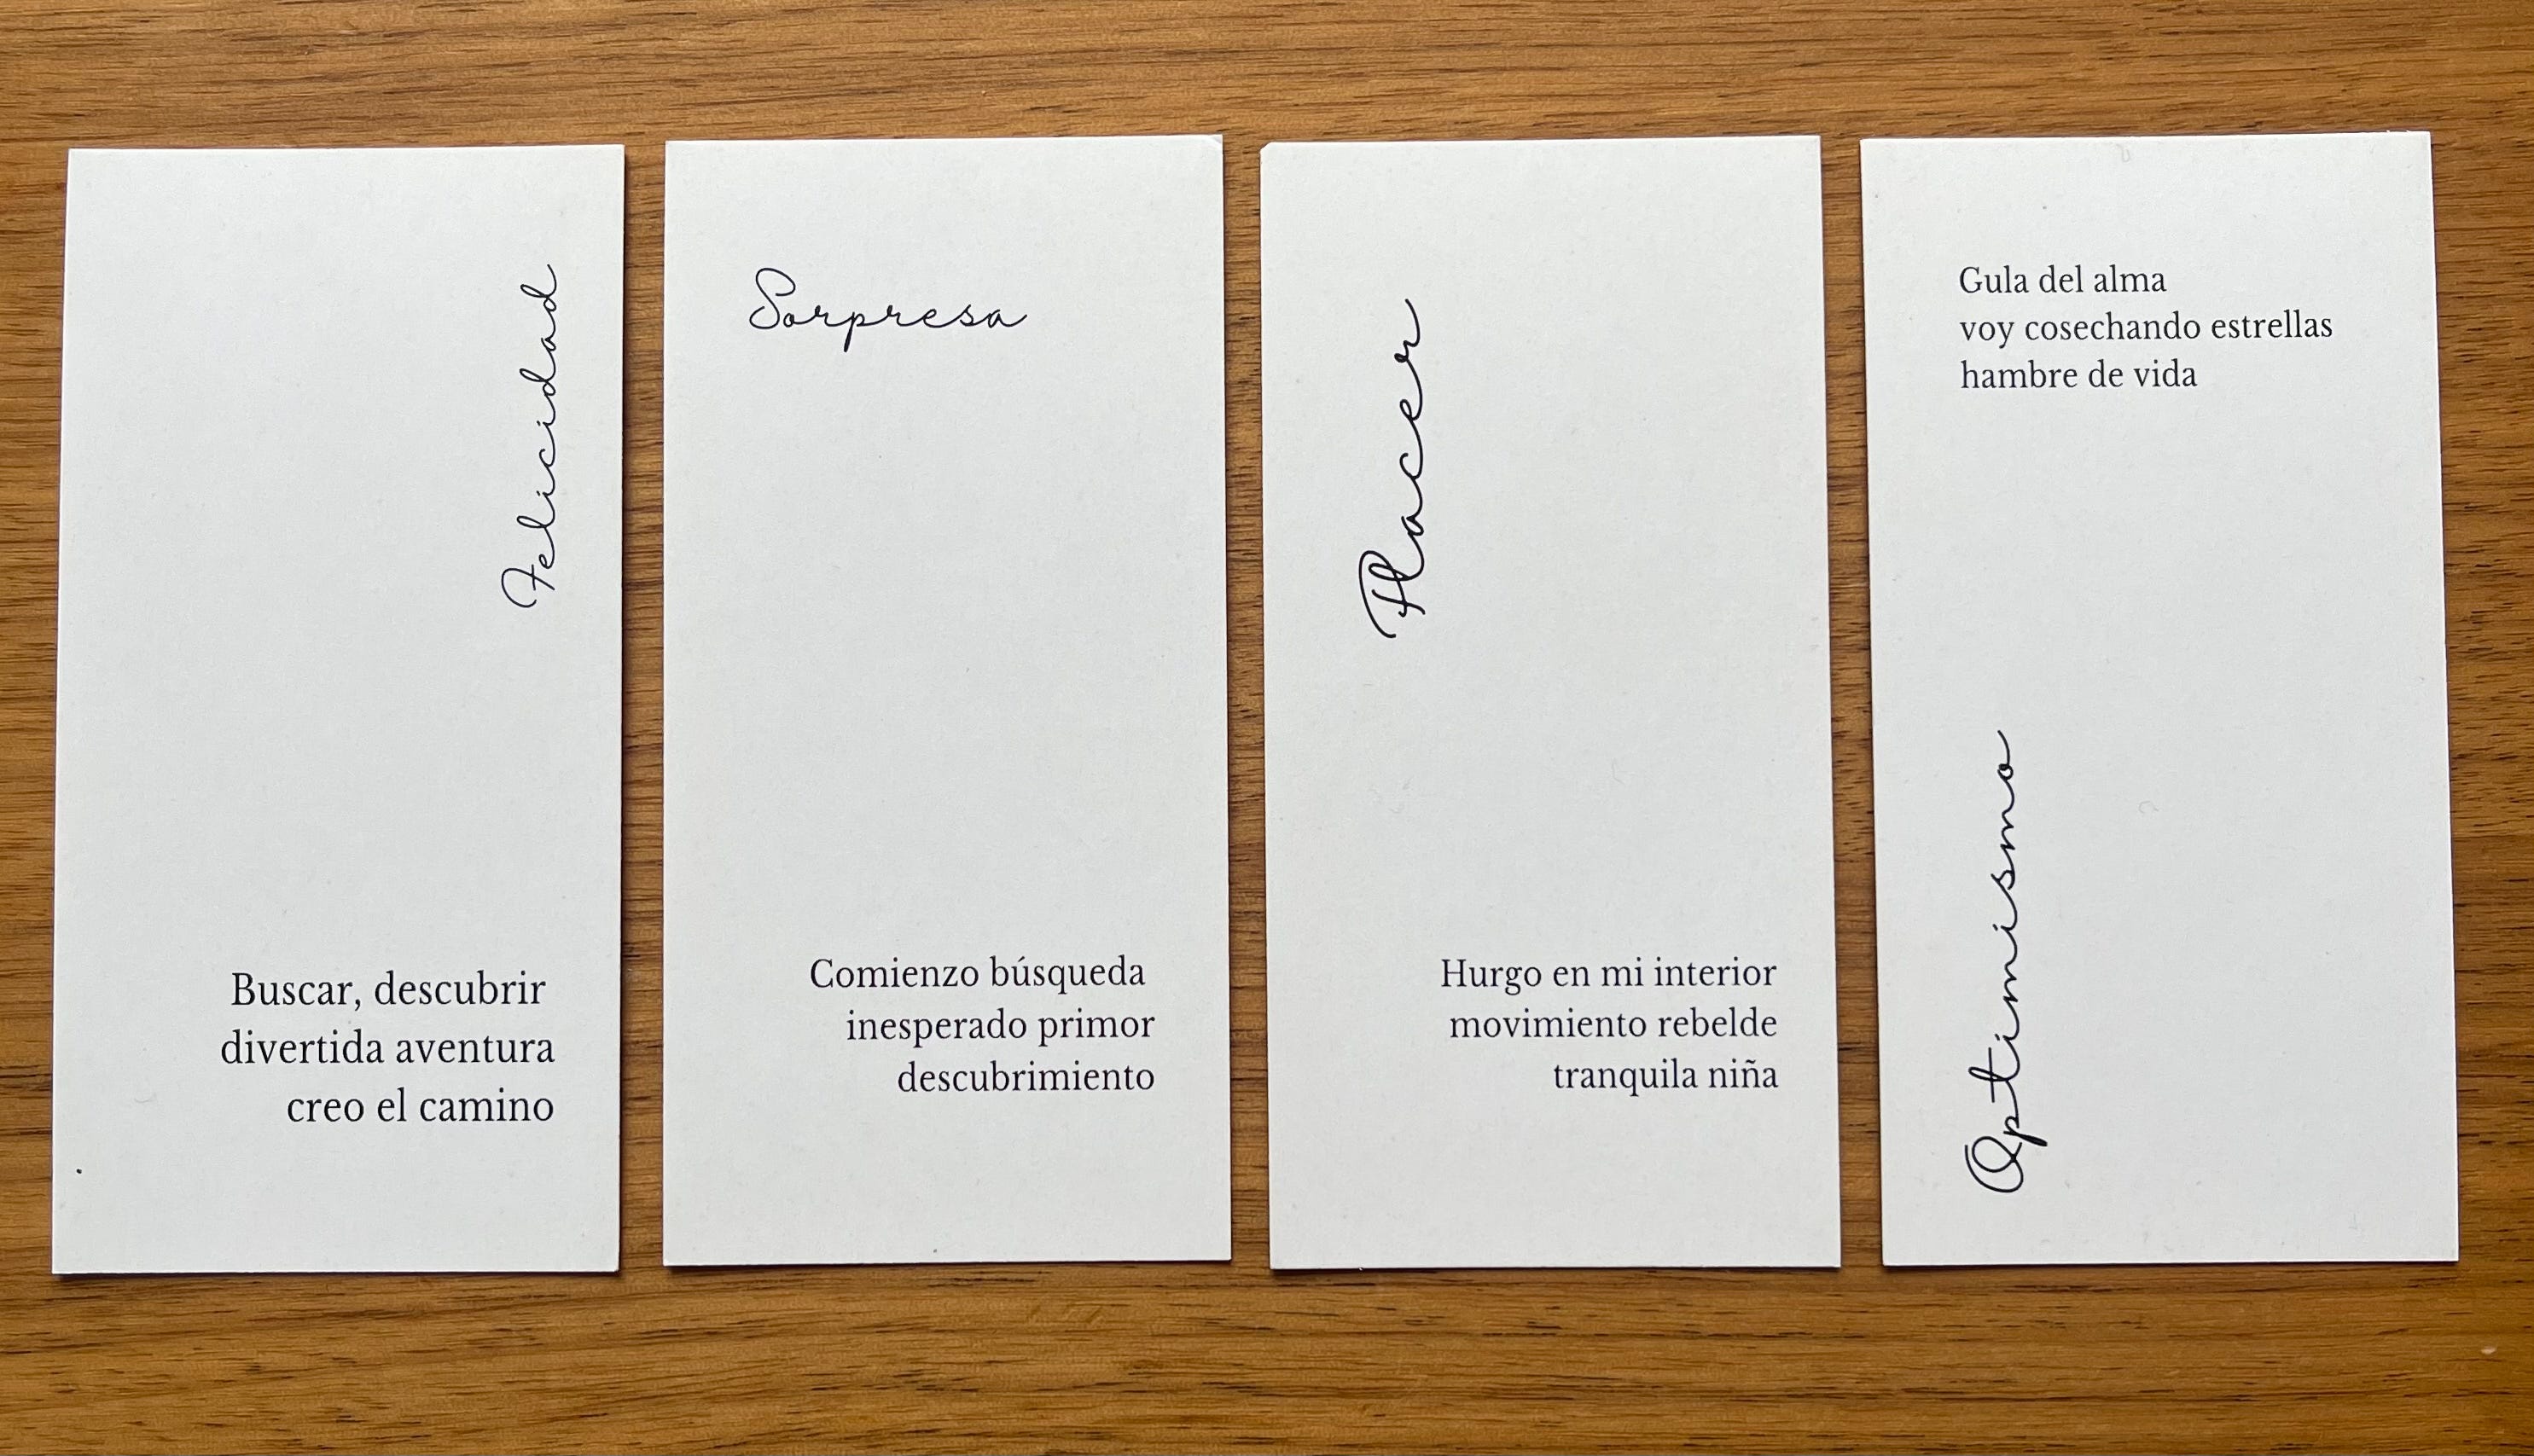 Felicidad
Buscar, descubrir
divertida aventura
creo el camino
Sorpresa
Comienzo búsqueda
inesperado primor
descubrimiento
Placer
Hurgo en mi interior
movimiento rebelde
tranquila niña
Gula del alma
voy cosechando estrellas
hambre de vida
Optimismo